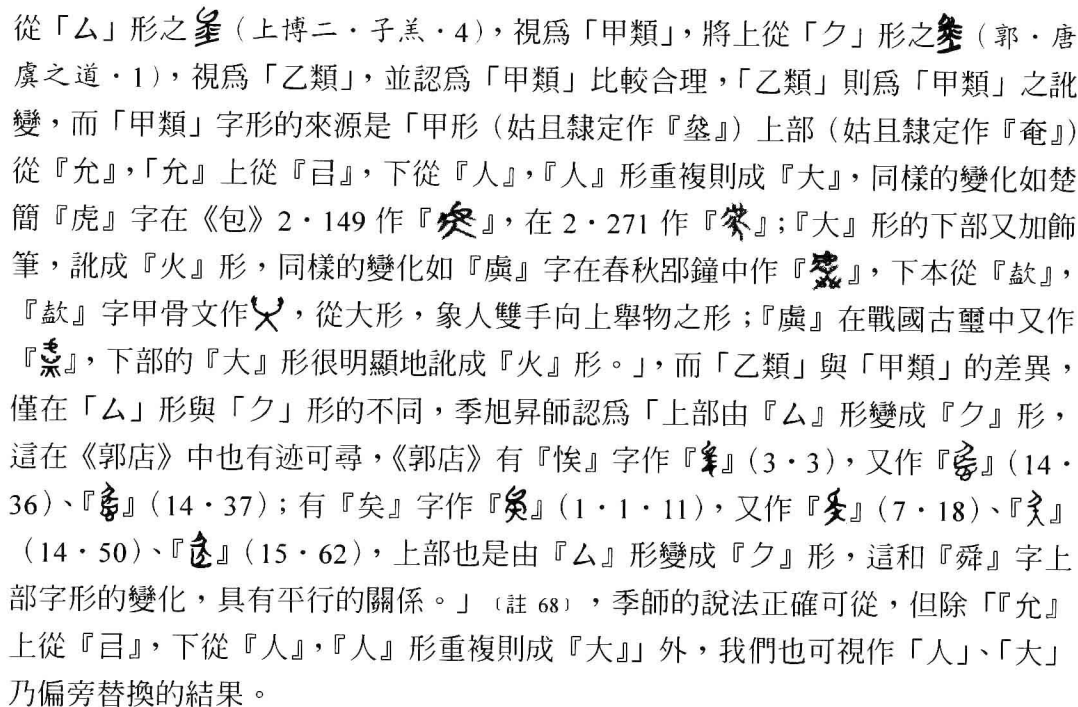 從「厶」形之（上博二．子羔．4），視爲「甲類」，將上從「ク」形之（郭．唐
虞之道．1），視爲「乙類」，並認爲「甲類」比較合理，「乙類」則爲「甲類」之訛
變，而「甲類」字形的來源是「甲形（姑且隸定作『』）上部（姑且隸定作『』）
從『允』，「允』上從『㠯』，下從『人』，『人』形重複則成『大』，同樣的變化如楚
簡『虎』字在《包》2．149 作『』，在 2．271 作『』；『大』形的下部又加飾
筆，訛成『火』形，同樣的變化如『虡』字在春秋郘鐘中作『』，下本從『』，
『』字甲骨文作，從大形，象人雙手向上舉物之形；『虡』在戰國古璽中又作
『』，下部的『大』形很明顯地訛成『火』形。」，而「乙類」與「甲類」的差異，
僅在「厶」形與「ク」形的不同，季旭昇師認爲「上部由『厶』形變成『ク』形，
這在《郭店》中也有迹可尋，《郭店》有『俟』字作『』（3．3），又作『』（14．
36）、『』（14．37）；有『矣』字作『』（1．1．11），又作『』（7．18）、『』
（14．50）、『』（15．62），上部也是由『厶』形變成『ク』形，這和『舜』字上
部字形的變化，具有平行的關係。」〔註 68〕，季師的說法正確可從，但除「『允』
上從『㠯』，下從『人』，『人』形重複則成『大』」外，我們也可視作「人」、「大」
乃偏旁替換的結果。